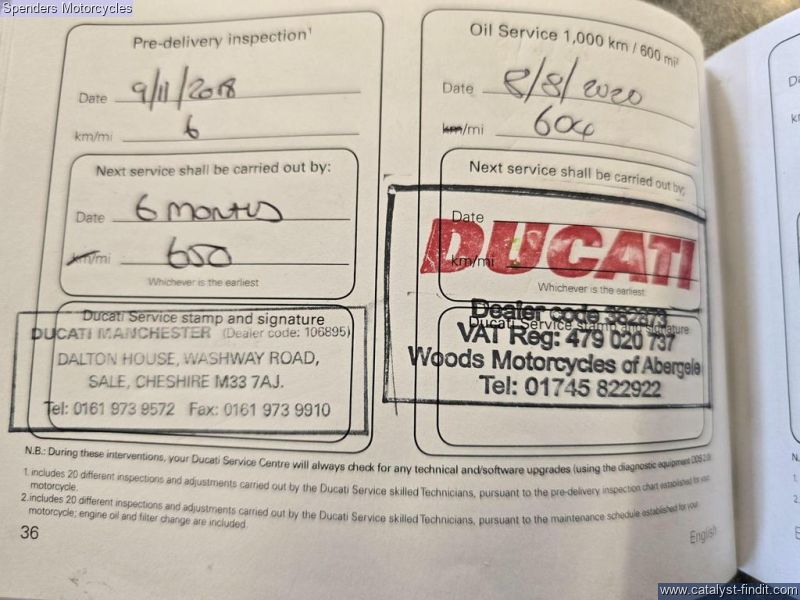 Spenders Motorcycles
Pre-delivery inspection¹
Date 9/11/2018
km/mi 6
Next service shall be carried out by:
Date 6 MONTHS
km/mi 600
Whichever is the earliest
Ducati Service stamp and signature
DUCATI MANCHESTER (Dealer code: 106895)
DALTON HOUSE, WASHWAY ROAD,
SALE, CHESHIRE M33 7AJ.
Tel: 0161 973 9572 Fax: 0161 973 9910
Oil Service 1,000 km / 600 mi²
Date 8/8/2020
km/mi 604
Next service shall be carried out by:
Date
DUCATI
km/mi
Whichever is the earliest
Dealer code
Ducati Service stamp and signature
VAT Reg: 479 020 737
Woods Motorcycles of Abergele
Tel: 01745 822922
N.B.: During these interventions, your Ducati Service Centre will always check for any technical and/software upgrades (using the diagnostic equipment DDS 2.0)
1. includes 20 different inspections and adjustments carried out by the Ducati Service skilled Technicians, pursuant to the pre-delivery inspection chart established for your
motorcycle.
2. includes 20 different inspections and adjustments carried out by the Ducati Service skilled Technicians, pursuant to the maintenance schedule established for your
motorcycle; engine oil and filter change are included.
36
English
www.catalyst-findit.com